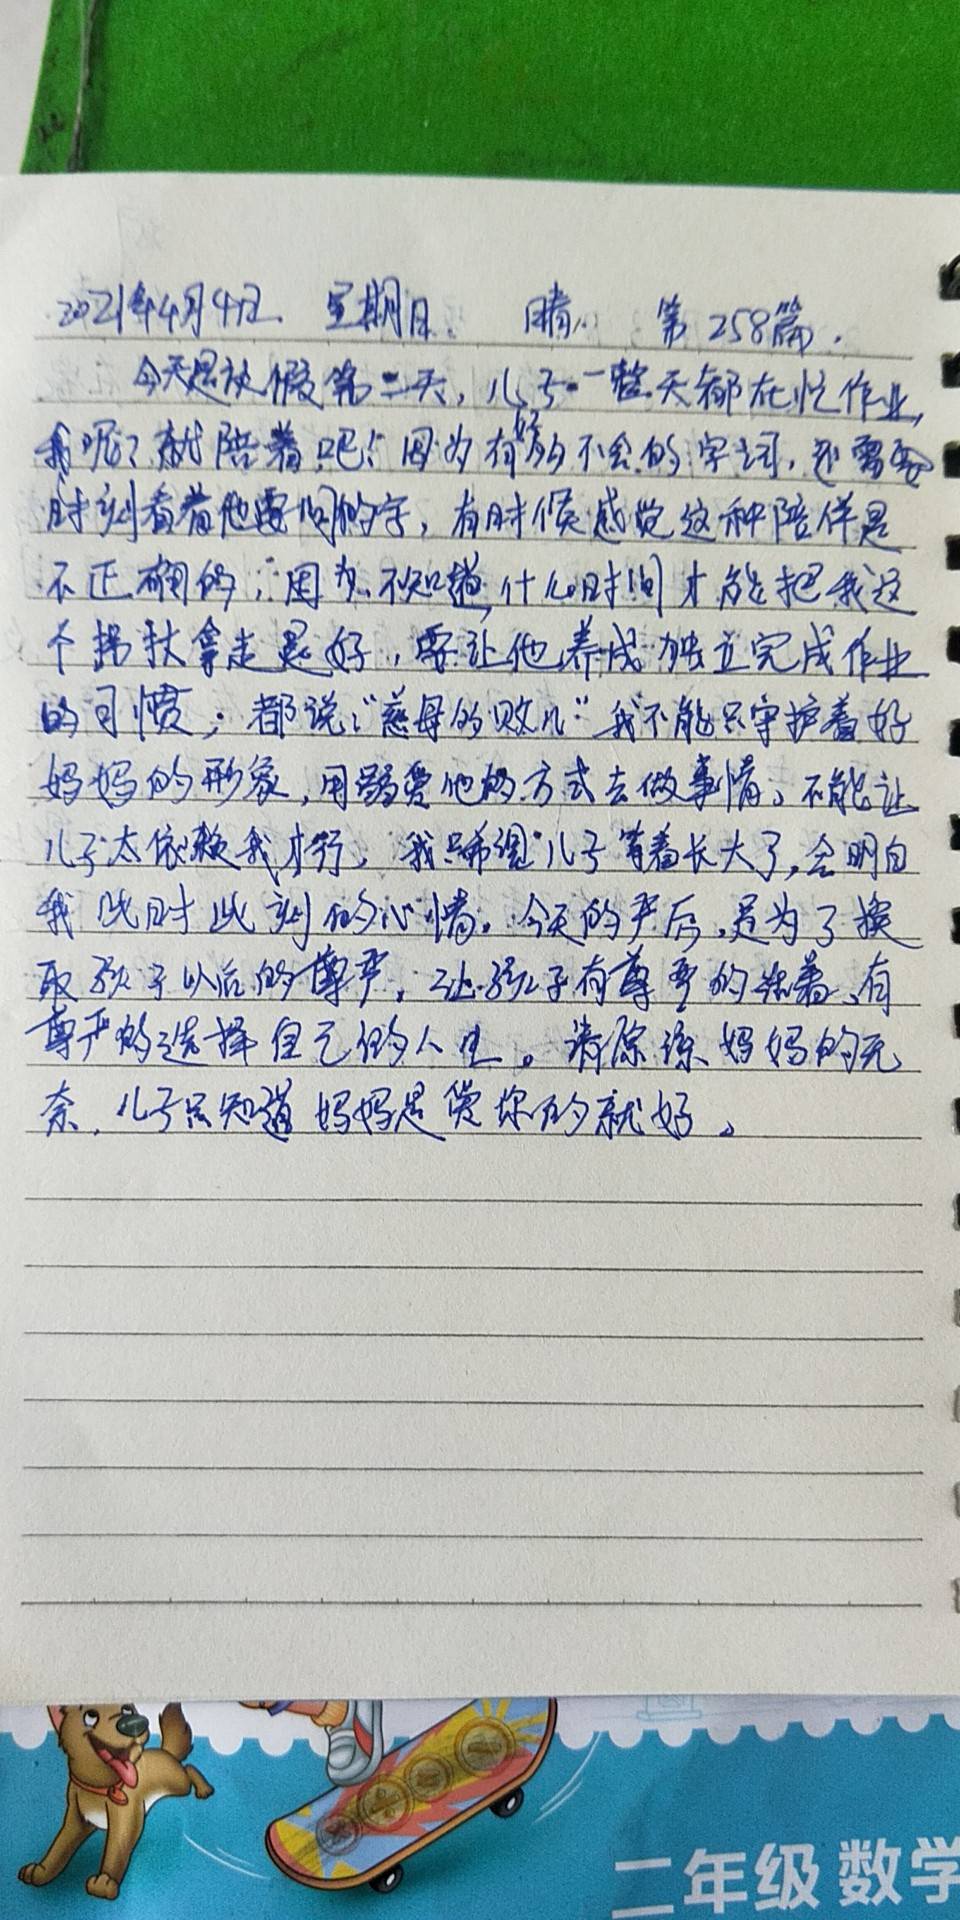 2021年4月4日. 星期日. 晴. 第258篇.
今天是放假第二天,儿子一整天都在忙作业,
我呢?就陪着吧!因为有好多不会的字词,还需要
时刻看着他要问的字,有时候感觉这种陪伴是
不正确的,因为不知道什么时间才能把我这
个拐扶拿走是好,要让他养成独立完成作业
的习惯;都说:“慈母的败儿”我不能只守护着好
妈妈的形象,用溺爱他的方式去做事情。不能让
儿子太依赖我才行。我只希望儿子等着长大了,会明白
我此时此刻的心情。今天的严厉,是为了换
取孩子以后的尊严,让孩子有尊严的活着、有
尊严的选择自己的人生。请原谅妈妈的无
奈,儿子只知道妈妈是爱你的就好。
二年级 数学